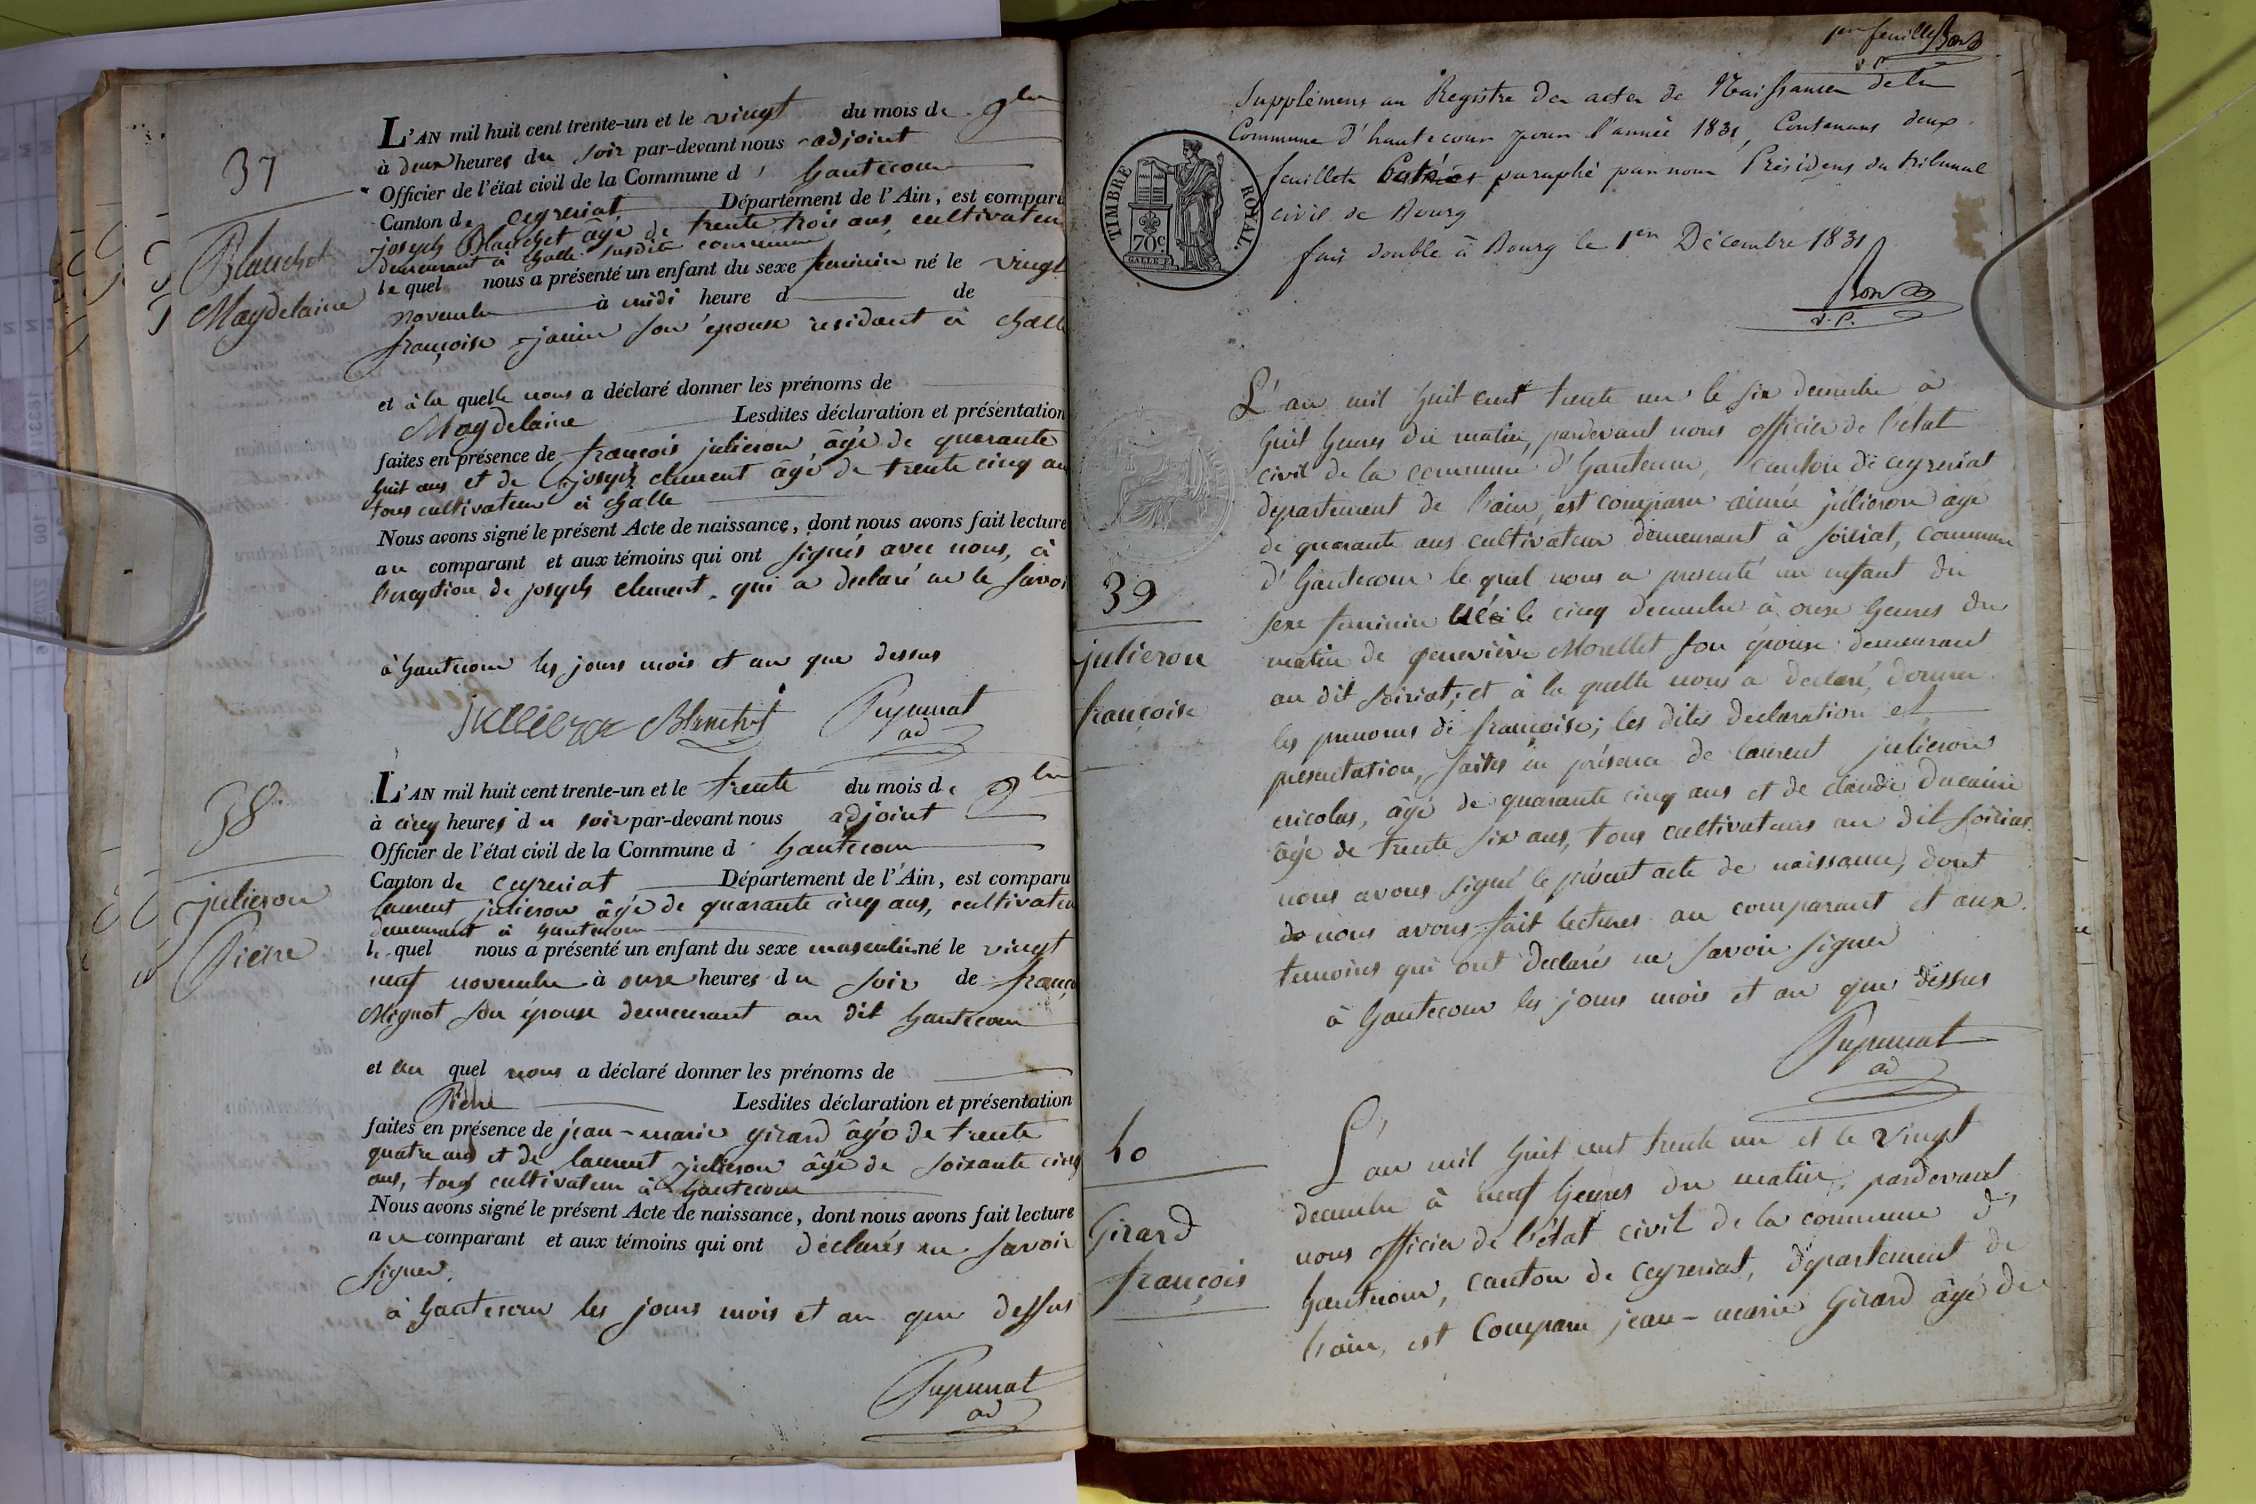 37
Blanchet
Magdelaine
L'AN mil huit cent trente-un et le vingt du mois de 9bre
à deux heures du soir par-devant nous adjoint
Officier de l'état civil de la Commune d' hautecour
Canton de ceyzeriat Département de l'Ain, est comparu
joseph Blanchet âgé de trente trois ans, cultivateur
demeurant à challe susdite commune
lequel nous a présenté un enfant du sexe feminin né le vingt
novembre à midi heure d de
françoise janin son épouse residant à challe
et à la quelle nous a déclaré donner les prénoms de
Magdelaine Lesdites déclaration et présentation
faites en présence de françois julieron âgé de quarante
huit ans et de joseph clement âgé de trente cinq ans
tous cultivateurs à challe
Nous avons signé le présent Acte de naissance, dont nous avons fait lecture
au comparant et aux témoins qui ont signés avec nous, à
l'exception de joseph clement qui a declaré ne le savoir
à hautecour les jours mois et an que dessus
Blanchet Pupunat
ad
38
julieron
Pierre
L'AN mil huit cent trente-un et le trente du mois de 9bre
à cinq heures du soir par-devant nous adjoint
Officier de l'état civil de la Commune d' hautecour
Canton de ceyzeriat Département de l'Ain, est comparu
laurent julieron âgé de quarante cinq ans, cultivateur
demeurant à hautecour
le quel nous a présenté un enfant du sexe masculin né le vingt
neuf novembre à onze heures du soir de franç
Mignot son épouse demeurant au dit hautecour
et au quel nous a déclaré donner les prénoms de
Pierre Lesdites déclaration et présentation
faites en présence de jean-marie girard âgé de trente
quatre ans et de laurent julieron âgé de soixante cinq
ans, tous cultivateurs à hautecour
Nous avons signé le présent Acte de naissance, dont nous avons fait lecture
au comparant et aux témoins qui ont déclarés ne savoir
signer.
à hautecour les jours mois et an que dessus
Pupunat
ad
1er feuillet
v.p.
Supplément au Registre des actes de Naissances de la
Commune d'hautecour pour l'année 1831, Contenant deux
feuillets paraphé par nous Président du tribunal
civil de Bourg
fait double à Bourg le 1er Décembre 1831
v.p.
TIMBRE ROYAL.
70c
39
julieron
françoise
L'an mil huit cent trente un le six decembre à
huit heures du matin, pardevant nous officier de l'état
civil de la commune d'hautecour, canton de ceyzeriat
departement de l'ain, est comparu aimé julieron âgé
de quarante ans cultivateur demeurant à soiriat, commune
d'hautecour le quel nous a presenté un enfant du
sexe feminin né le cinq decembre à onze heures du
matin de geneviève Morellet son épouse demeurant
au dit soiriat; et à la quelle nous a declaré, donner
les prenoms de françoise; les dites declaration et
presentation, faites en présence de laurent julieron
nicolas, âgé de quarante cinq ans et de claude
âgé de trente six ans, tous cultivateurs au dit soiriat
nous avons signé le présent acte de naissance, dont
nous avons fait lectures au comparant et aux
temoins qui ont declarés ne savoir signer
à hautecour les jours mois et an que dessus
Pupunat
ad
40
Girard
françois
L'an mil huit cent trente un et le vingt
decembre à neuf heures du matin, pardevant
nous officier de l'état civil de la commune d'
hautecour, canton de ceyzeriat, département de
l'ain, est Comparu jean-marie Girard âgé de